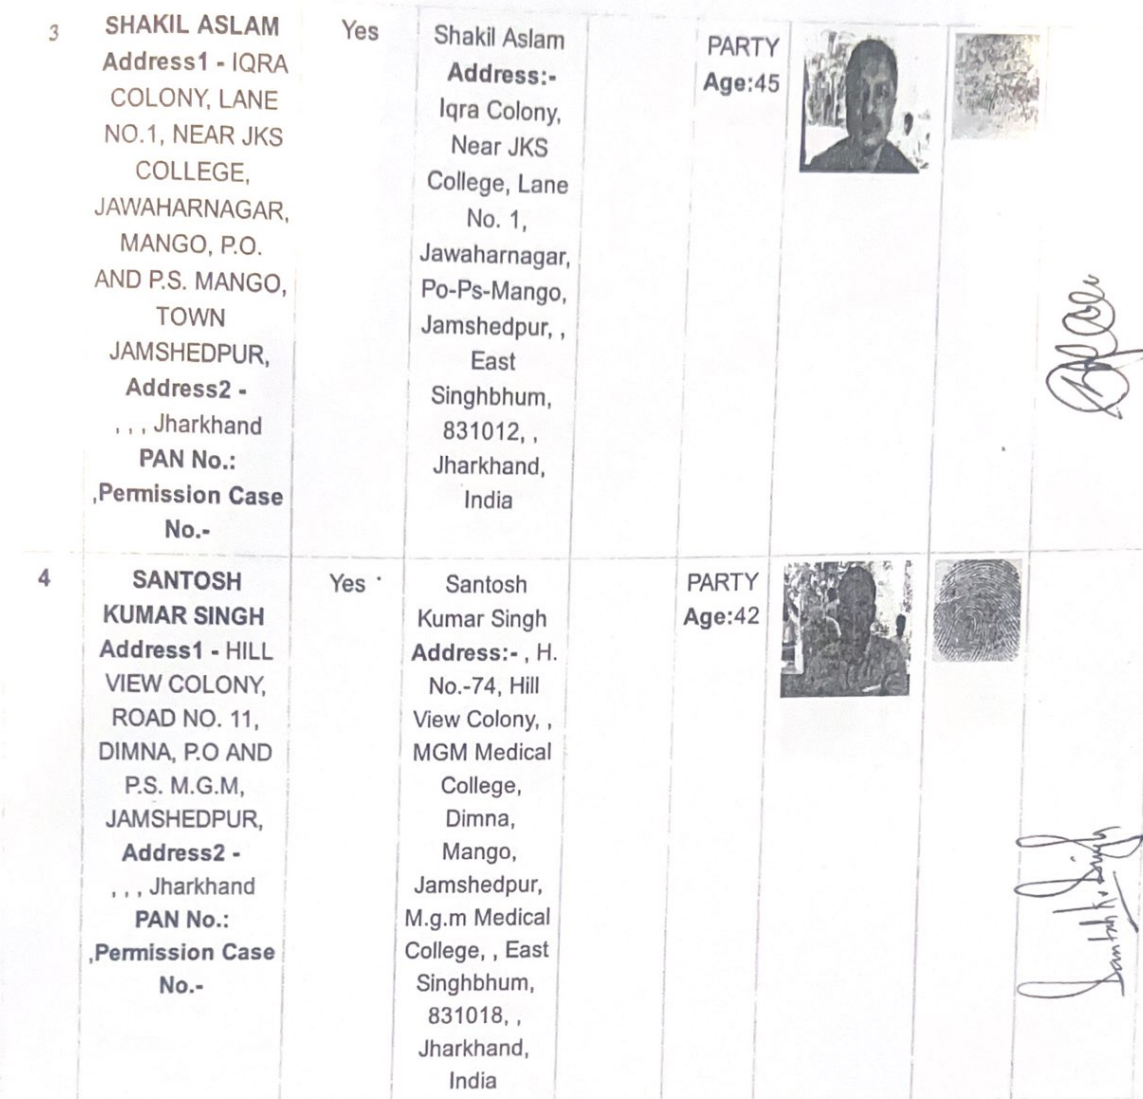 3
SHAKIL ASLAM
Address1 - IQRA
COLONY, LANE
NO.1, NEAR JKS
COLLEGE,
JAWAHARNAGAR,
MANGO, P.O.
AND P.S. MANGO,
TOWN
JAMSHEDPUR,
Address2 -
, , , Jharkhand
PAN No.:
,Permission Case
No.-
Yes
Shakil Aslam
Address:-
Iqra Colony,
Near JKS
College, Lane
No. 1,
Jawaharnagar,
Po-Ps-Mango,
Jamshedpur, ,
East
Singhbhum,
831012, ,
Jharkhand,
India
PARTY
Age:45
4
SANTOSH
KUMAR SINGH
Address1 - HILL
VIEW COLONY,
ROAD NO. 11,
DIMNA, P.O AND
P.S. M.G.M,
JAMSHEDPUR,
Address2 -
, , , Jharkhand
PAN No.:
,Permission Case
No.-
Yes
Santosh
Kumar Singh
Address:- , H.
No.-74, Hill
View Colony, ,
MGM Medical
College,
Dimna,
Mango,
Jamshedpur,
M.g.m Medical
College, , East
Singhbhum,
831018, ,
Jharkhand,
India
PARTY
Age:42
Santosh Kr Singh